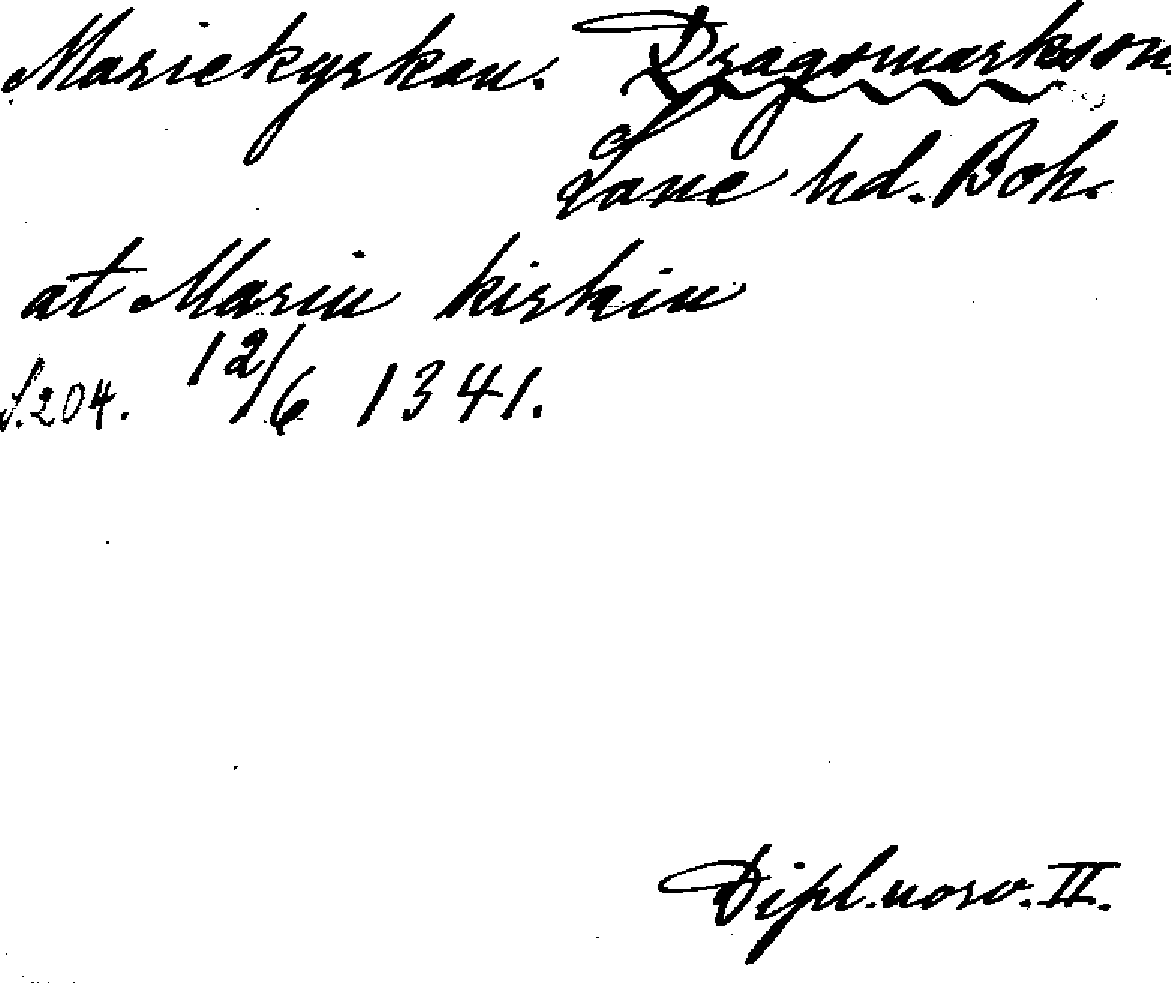 Mariekyrkan. Dragsmarkssn.
Lane hd. Boh.
at Mariu kirkiu
S. 204. 12/6 1341.
Dipl. norv. II.